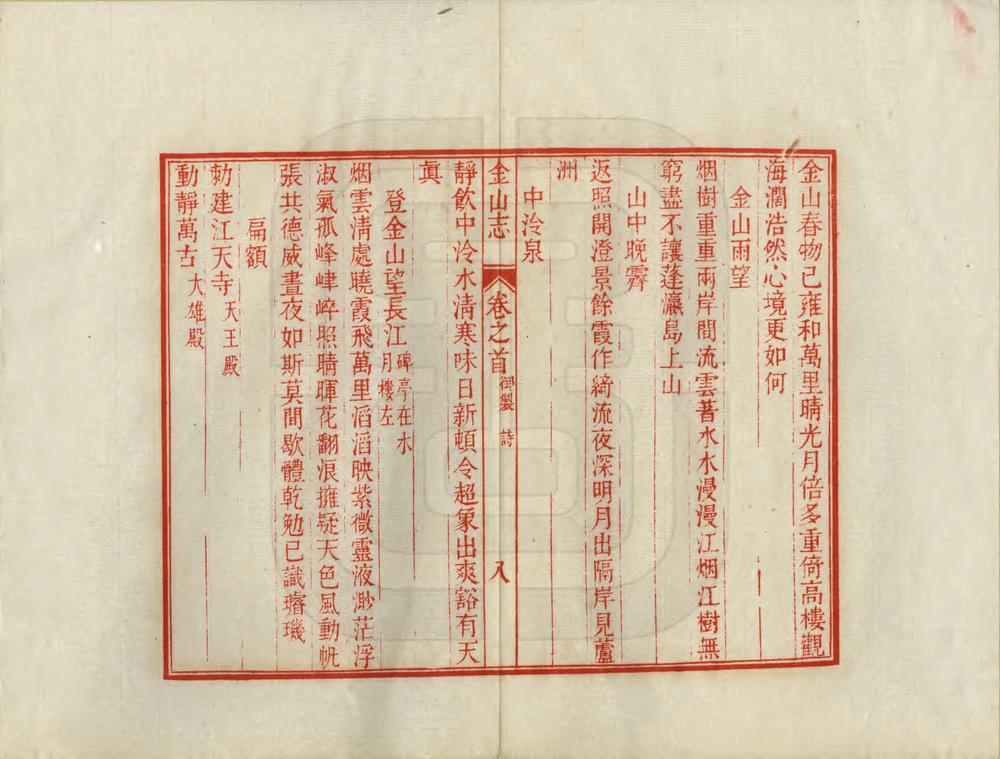 金山春物已雍和萬里晴光月倍多重倚高樓觀
海濶浩然心境更如何
金山雨望
烟樹重重兩岸間流雲著水水漫漫江烟江樹無
窮盡不讓蓬瀛島上山
山中晚霽
返照開澄景餘霞作綺流夜深明月出隔岸見蘆
洲
中泠泉
金山志
卷之首
御製 詩
八
靜飲中泠水清寒味日新頓令超象出爽豁有天
眞
登金山望長江
碑亭在水
月樓左
烟雲淸處曉霞飛萬里滔滔映紫微靈液渺茫浮
淑氣孤峰峍崪照晴暉花翻浪擁疑天色風動帆
張共德威晝夜如斯莫間歇體乾勉已識璿璣
扁額
勑建江天寺 天王殿
動靜萬古 大雄殿